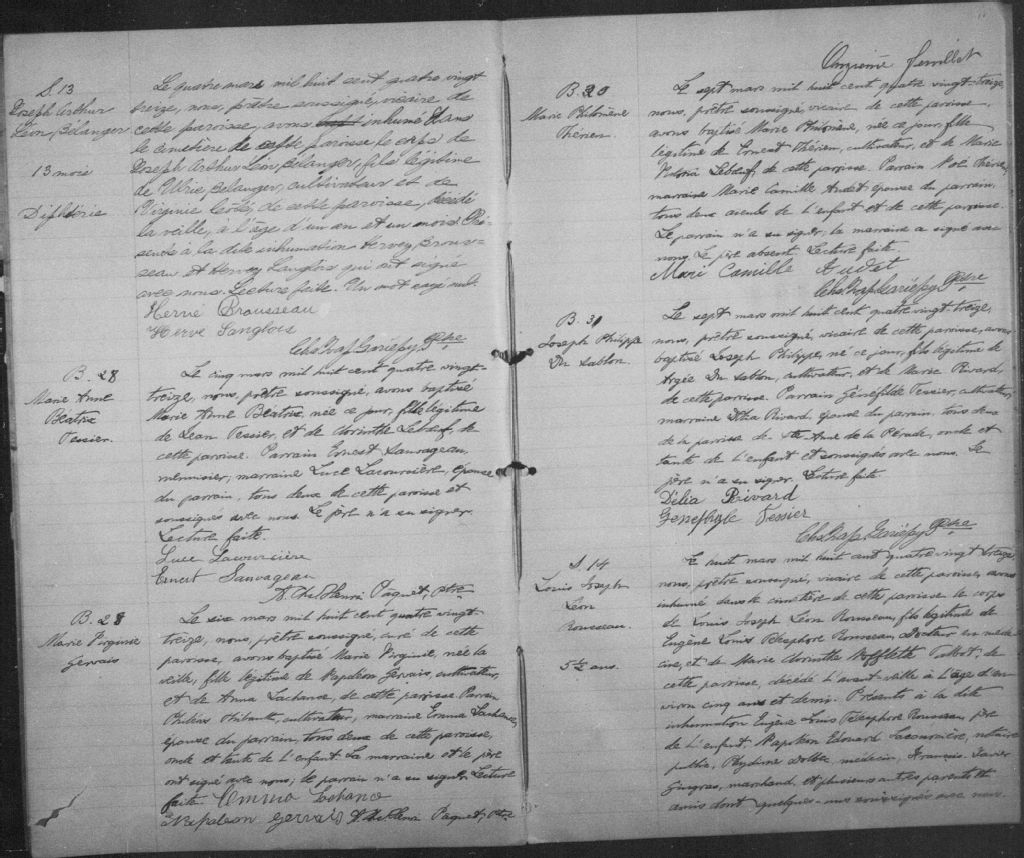 S. 13
Joseph Arthur
Léon, Bélanger
13 mois
Difthérie
Le quatre mars mil huit cent quatre vingt
treize, nous, prêtre soussigné, vicaire de
cette paroisse, avons inhumé dans
le cimetière de cette paroisse le corps de
Joseph Arthur Léon, Bélanger, fils légitime
de Ulric, Bélanger, cultivateur et de
Virginie de cette paroisse, décédé
la veille, à l'âge d'un an et un mois. Pré-
sents à la dite inhumation Hervey, Brous-
seau et Hervey Langlois qui ont signé
avec nous. Lecture faite. Un mot rayé nul.
Hervé Brousseau
Hervé Langlois
Chs Nap Gariépy Ptre
B. 28
Marie Anne
Béatrix
Tessier.
Le cinq mars mil huit cent quatre vingt-
treize, nous, prêtre soussigné, avons baptisé
Marie Anne Béatrix, née ce jour, fille légitime
de Jean Tessier, et de Corinthe Leboeuf, de
cette paroisse. Parrain Ernest Sauvageau,
menuisier, marraine Luce Lacoursière, épouse
du parrain, tous deux de cette paroisse et
soussignés avec nous. Le père n'a su signer.
Lecture faite.
Luce Lacoursière
Ernest Sauvageau
Henri Paquet, Ptre
B. 28
Marie Virginie
Gervais
Le six mars mil huit cent quatre vingt-
treize, nous, prêtre soussigné, curé de cette
paroisse, avons baptisé Marie Virginie, née la
veille, fille légitime de Napoléon Gervais, cultivateur,
et de Anna Lachance, de cette paroisse. Parrain
Philéas Thibault, cultivateur, marraine Emma Lachance,
épouse du parrain, tous deux de cette paroisse,
oncle et tante de l'enfant. La marraine et le père
ont signé avec nous; le parrain n'a su signer. Lecture
faite. Emma
Napoleon Gervais Henri Paquet, Ptre
Onzième feuillet
B. 30
Marie Philomène
Thérien.
Le sept mars mil huit cent quatre vingt-treize,
nous, prêtre soussigné, vicaire de cette paroisse,
avons baptisé Marie Philomène, née ce jour, fille
légitime de Ernest Thérien, cultivateur, et de Marie
Leboeuf, de cette paroisse. Parrain Noé Thérien,
marraine Marie Camille Audet épouse du parrain,
tous deux aieuls de l'enfant et de cette paroisse.
Le parrain n'a su signer, la marraine a signé avec
nous. Le père absent. Lecture faite.
Marie Camille Audet
Chs Nap Gariépy Ptre
B. 31
Joseph Philippe
Du Sablon
Le sept mars mil huit cent quatre vingt treize,
nous, prêtre soussigné, vicaire de cette paroisse, avons
baptisé Joseph Philippe, né ce jour, fils légitime de
Argée Du Sablon, cultivateur, et de Marie Rivard,
de cette paroisse. Parrain Tessier, cultivateur,
marraine Rivard, épouse du parrain, tous deux
de la paroisse de Ste Anne de la Pérade, oncle et
tante de l'enfant et soussignés avec nous. Le
père n'a su signer. Lecture faite
Délia Rivard
Tessier
Chs Nap Gariépy Ptre
S. 14
Louis Joseph
Léon
Rousseau.
5½ ans.
Le huit mars mil huit cent quatre vingt treize
nous, prêtre soussigné, vicaire de cette paroisse, avons
inhumé dans le cimetière de cette paroisse le corps
de Louis Joseph Léon Rousseau, fils légitime de
Eugène Louis Télesphore Rousseau, Docteur en méde-
cine, et de Marie Corinthe Talbot, de
cette paroisse, décédé l'avant veille à l'âge d'en
viron cinq ans et demi. Présents à la dite
inhumation Eugène Louis Télesphore Rousseau, père
de l'enfant, Napoléon Edouard Lacoursière, notaire
public, médecin, François Xavier
Gingras, marchand, et plusieurs autres parents et
amis dont quelques-uns soussignés avec nous.